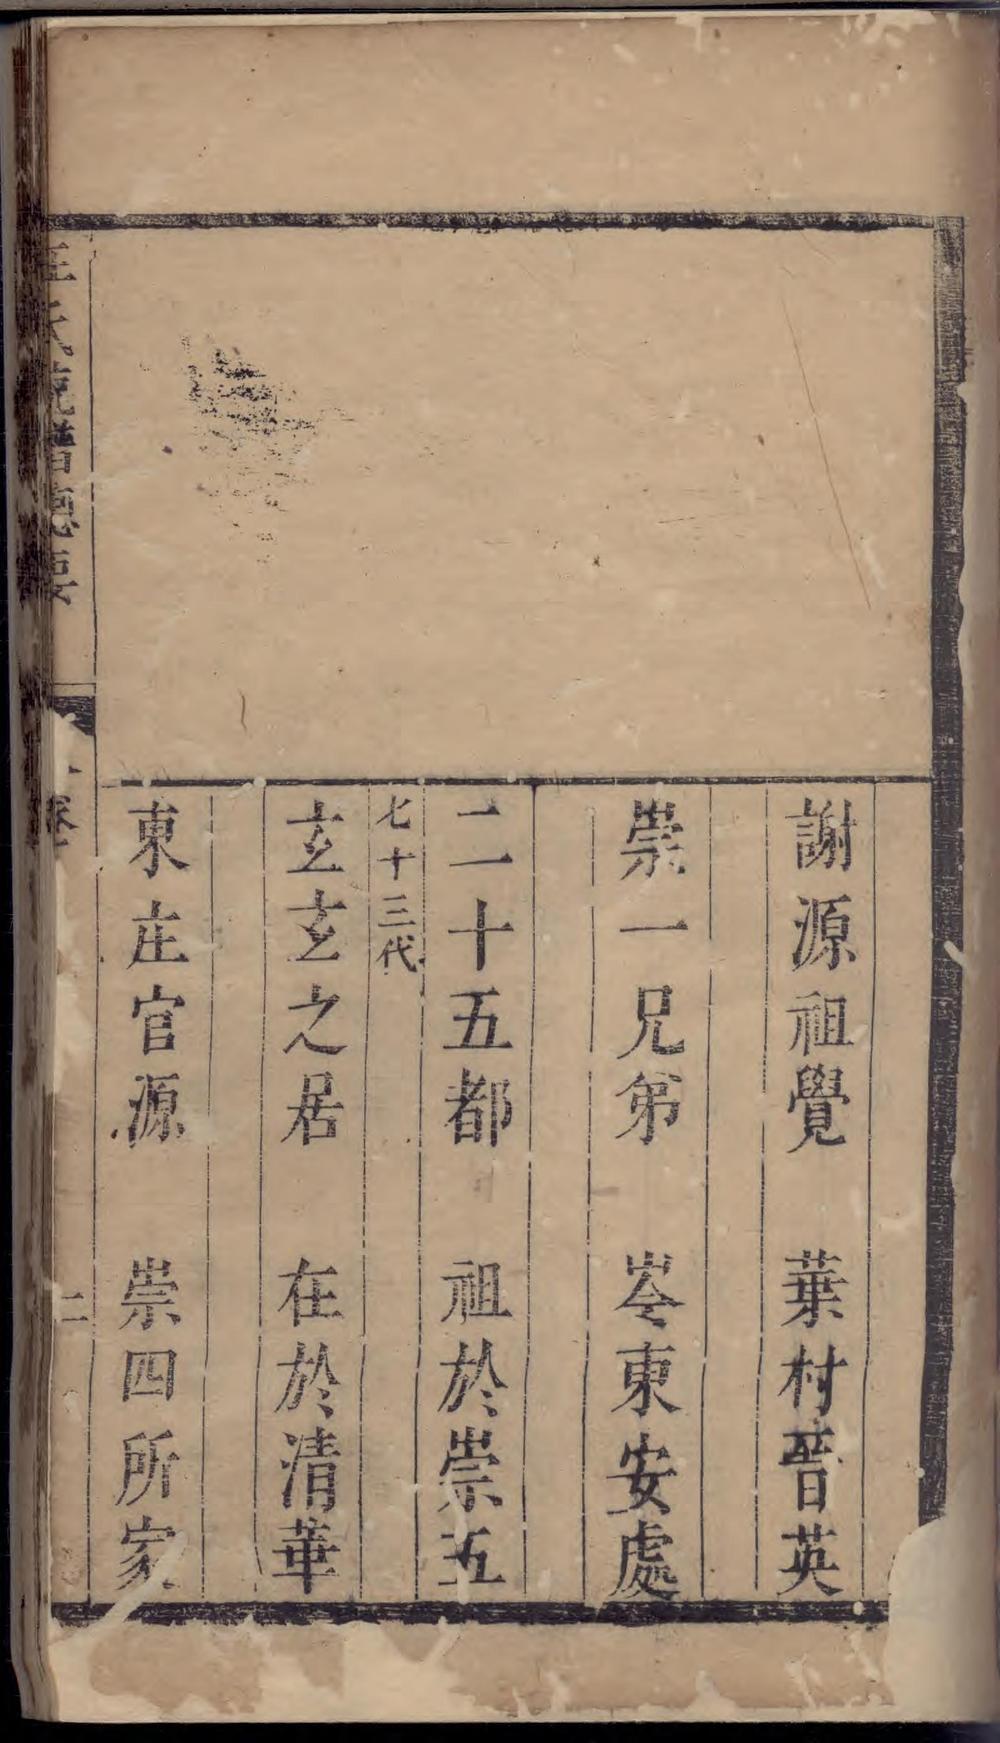 謝源祖覺 葉村晉英
崇一兄弟 岑東安處
二十五都 祖於崇五
七十三代
玄玄之居 在於清華
東庄官源 崇四所家
二